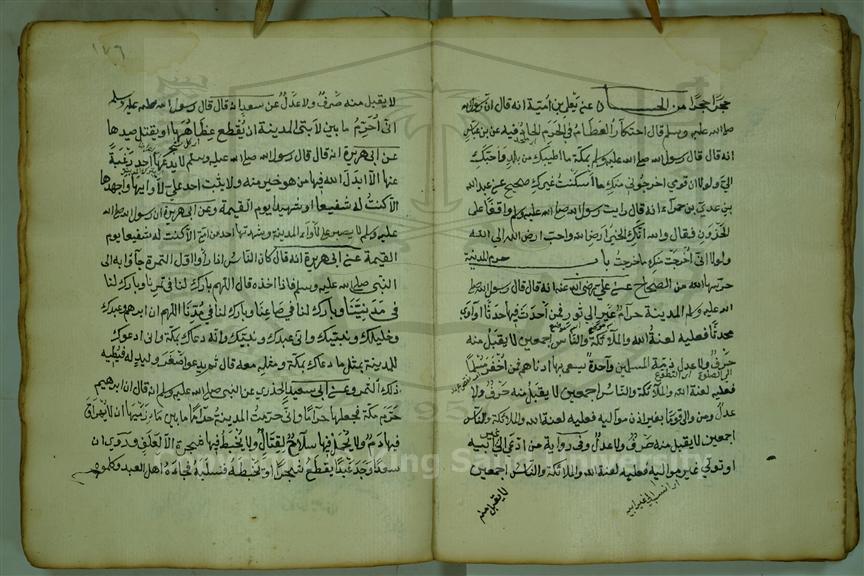 حجرًا حجرًا من الحسان عن يعلى بن امية انه قال ان رسول الله
صلى الله عليه وسلم قال احتكار الطعام في الحرم الحاد فيه عن ابن عباس
انه قال قال رسول الله صلى الله عليه وسلم بمكة ما اطيبك من بلد واحبك
الي ولولا ان قومي اخرجوني منك ما اسكنت غيرك صحيح عن عبد الله
بن عدي بن حمراء انه قال رايت رسول الله صلى الله عليه وسلم واقفا على
الحزورة فقال والله انك لخير ارض الله واحب ارض الله الى الله
ولولا اني اخرجت منك ما خرجت باب حرم المدينة
حرسها الله من الصحاح عن علي رضي الله عنه انه قال قال رسول الله صلى
الله عليه وسلم المدينة حرام ما بين عير الى ثور فمن احدث فيها حدثًا او اوى
محدثًا فعليه لعنة الله والملائكة والناس اجمعين لا يقبل منه
صرف ولا عدل ذمة المسلمين واحدة يسعى بها ادناهم فمن اخفر مسلمًا
فعليه لعنة الله والملائكة والناس اجمعين لا يقبل منه صرف ولا
عدل ومن والى قومًا بغير اذن مواليه فعليه لعنة الله والملائكة والناس
اجمعين لا يقبل منه صرف ولا عدل وفي رواية من ادعى الى غير ابيه
او تولى غير مواليه فعليه لعنة الله والملائكة والناس اجمعين
لا يقبل منه
اي انتسب الى غير ابيه
١٧٦
لا يقبل منه صرف ولا عدل عن سعد انه قال قال رسول الله صلى الله عليه وسلم
اني احرم ما بين لابتي المدينة ان يقطع عضاهها او يقتل صيدها
عن ابي هريرة انه قال قال رسول الله صلى الله عليه وسلم لا يدعها احد رغبة
عنها الا ابدل الله فيها من هو خير منه ولا يثبت احد على لأوايها وجهدها
الا كنت له شفيعا او شهيدا يوم القيمة وعن ابي هريرة ان رسول الله صلى الله
عليه وسلم لا يصبر على لأواء المدينة وشدتها احد من امتي الا كنت له شفيعا يوم
القيمة عن ابي هريرة انه قال كان الناس اذا رأوا اول الثمرة جاؤا به الى
النبي صلى الله عليه وسلم فاذا اخذه قال اللهم بارك لنا في ثمرنا وبارك لنا
في مدينتنا وبارك لنا في صاعنا وبارك لنا في مدنا اللهم ان ابرهيم عبدك
وخليلك ونبيك واني عبدك ونبيك وانه دعاك بمكة واني ادعوك
للمدينة بمثل ما دعاك بمكة ومثله معه قال ثم يدعو اصغر وليد له فيعطيه
ذلك الثمر وعن ابي سعيد الخدري عن النبي صلى الله عليه وسلم انه قال ان ابرهيم
حرم مكة فجعلها حرامًا واني حرمت المدينة حرامًا ما بين مازميها ان لا يهراق
فيها دم ولا يحمل فيها سلاح لقتال ولا يخبط فيها شجرة الا لعلف وروي ان
سعدًا وجد عبدًا يقطع شجرًا او يخبطه فسلبه فجاءه اهل العبد فكلموه